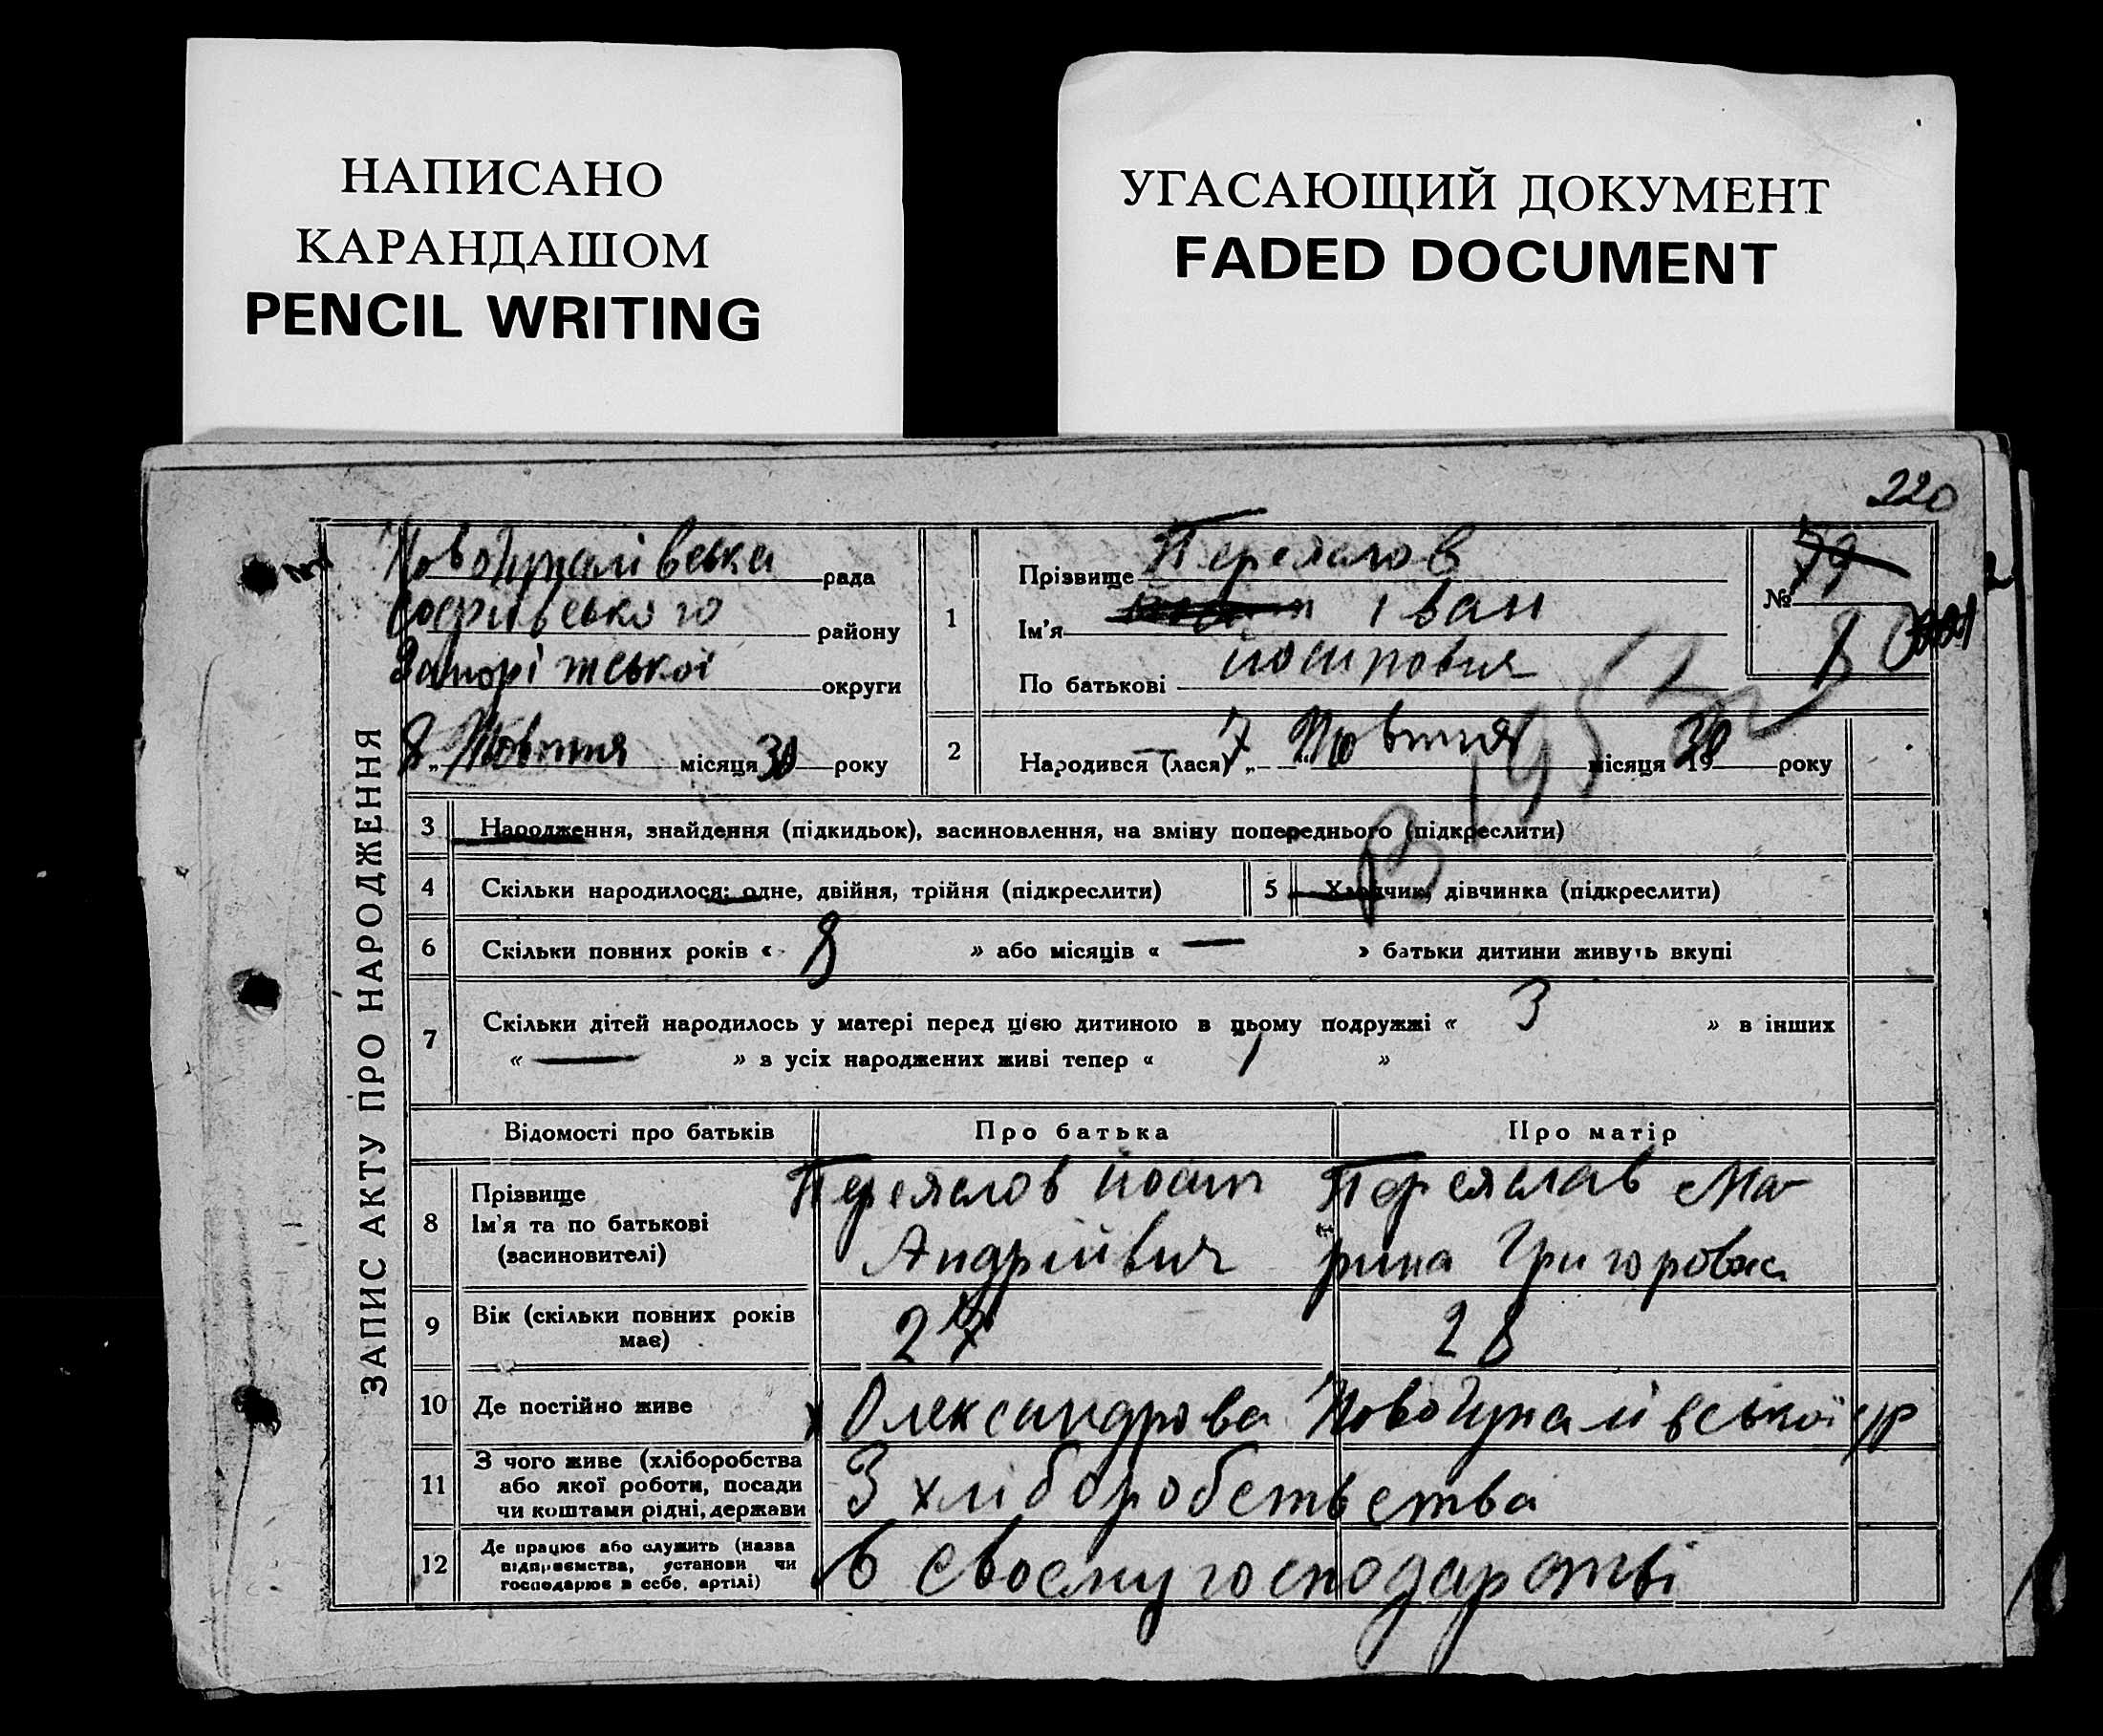 НАПИСАНО
КАРАНДАШОМ
PENCIL WRITING
УГАСАЮЩИЙ ДОКУМЕНТ
FADED DOCUMENT
220
ЗАПИС АКТУ ПРО НАРОДЖЕННЯ
рада
Софиівського району
Запоріжської округи
8 „ Жовтня місяця 30 року
1
Прізвище Переяслов
Ім'я Іван
По батькові Йосипович
№ 79
8
2 Народився (лася) 7 „ Жовтня місяця 1930 року
В 1953
3 Народження, знайдення (підкидьок), засиновлення, на зміну попереднього (підкреслити)
4 Скільки народилося: одне, двійня, трійня (підкреслити) 5 Хлопчик, дівчинка (підкреслити)
6 Скільки повних років « 8 » або місяців « — » батьки дитини живуть вкупі
7 Скільки дітей народилось у матері перед цією дитиною в цьому подружжі « 3 » в інших
« — » з усіх народжених живі тепер « 1 »
Відомості про батьків Про батька Про матір
8 Прізвище
Ім'я та по батькові
(засиновителі)
Переяслов Йосип
Андрійвич
Переяслав Ма-
рина Григоровна
9 Вік (скільки повних років
має) 27 28
10 Де постійно живе Олександрова
11 З чого живе (хліборобства
або якої роботи, посади
чи коштами рідні, держави
З хліборобства
12 Де працює або служить (назва
підприємства, установи чи
господарює в себе, артілі)
в своєму господарстві